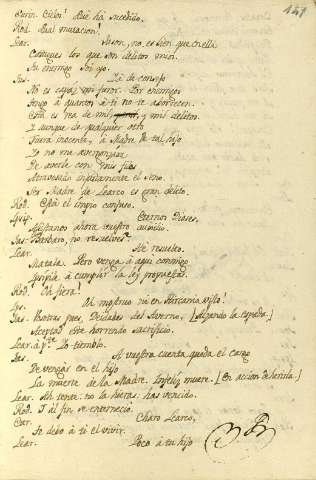 141
Eurin. Cielos! Que ha sucedido.
Rod. Qual mutacion!
Lear. Jason, no, es bien que en ella
Castigues los que son delitos mios.
Tu enemigo soy yo.
Jas. Ya de consejo
No es capaz mi furor. Por enemigos
tengo à quantos à ti no te aborrecen.
Esta es rea de mil, y mil delitos.
Y aunque de qualquier otro
Fuera inocente, à Madre de tal hijo
Yo no me avergonzára
De averle con mis filos
Atravesado impiamente el seno.
Ser Madre de Learco es gran delito.
Rod. Està el impio confuso.
Ipsip. Eternos Dioses,
Assistanos ahora vuestro auxilio.
Jas. Barbaro, no resuelves?
Lear. He resuelto.
Matala. Pero venga à aqui conmigo
Ipsipile à cumplir la ley propuesta.
Rod. Oh fiera!
Ips. Ni mostruo tal en Hircania visto!
Jas. Estas pues, Deidades del Averno, [Alzando la espada.]
Aceptad este horrendo sacrificio.
Lear. à pte. Yo tiemblo.
Jas. A vuestra cuenta queda el cargo
De vengar en el hijo
La muerte de la Madre. Infeliz muere. [En accion de herirla.]
Lear. Ah tente: no la hieras: has vencido.
Rod. Y al fin se enterneciò.
Eur. Charo Learco,
Yo debo à ti el vivir.
Lear. Poco à tu hijo